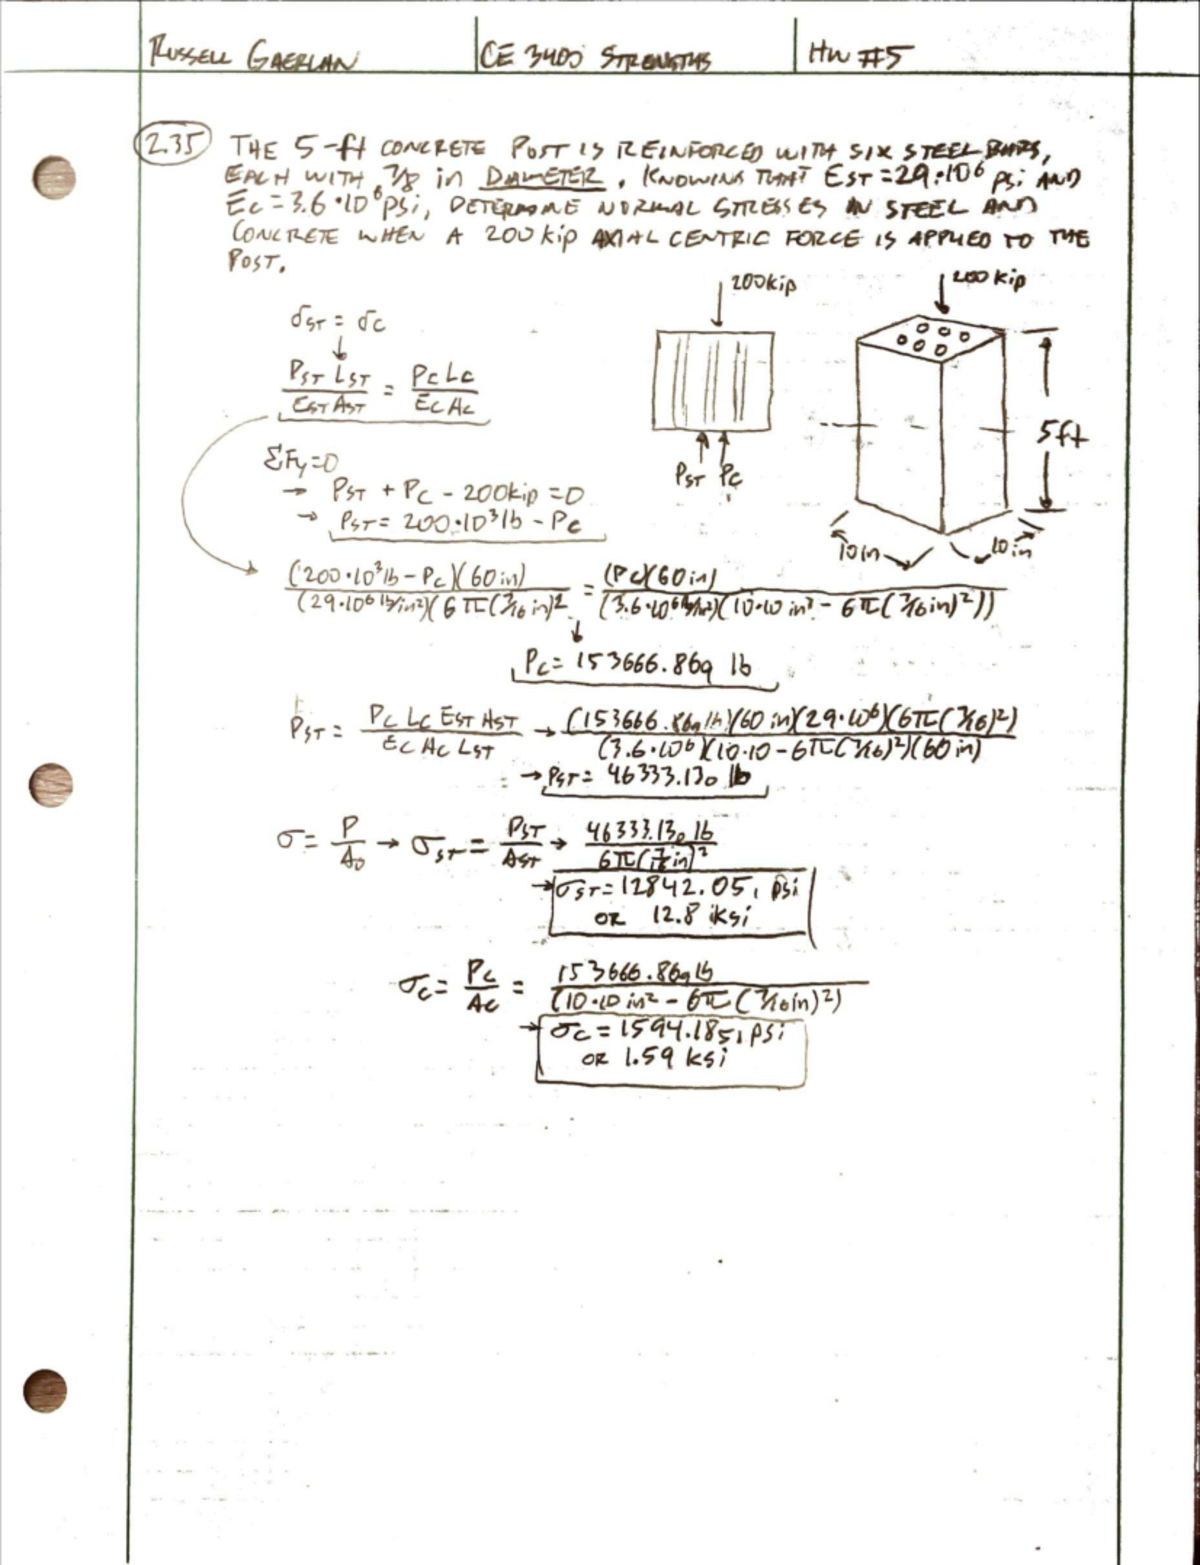 RUSSELL GAERLAN
CE 3403 STRENGTHS
HW #5
2.35 THE 5-ft CONCRETE POST IS REINFORCED WITH SIX STEEL BARS,
EACH WITH 7/8 in DIAMETER. KNOWING THAT EST = 29·10⁶ psi AND
Ec = 3.6·10⁶ psi, DETERMINE NORMAL STRESSES IN STEEL AND
CONCRETE WHEN A 200 kip AXIAL CENTRIC FORCE IS APPLIED TO THE
POST.
200kip
200 kip
δST = δc
↓
PST LST / EST AST = Pc Lc / Ec Ac
5ft
PST PC
10in
10in
ΣFy=0
→ PST + Pc - 200kip = 0
→ PST = 200·10³ lb - Pc
(200·10³ lb - Pc)(60 in) / (29·10⁶ lb/in²)(6π(7/16 in)² = (Pc)(60 in) / (3.6·10⁶ lb/in²)(10·10 in² - 6π(7/16 in)²))
↓
Pc = 153666.869 lb
PST = Pc Lc EST AST / Ec Ac LST → (153666.869 lb)(60 in)(29·10⁶)(6π(7/16)²) / (3.6·10⁶)(10·10 - 6π(7/16)²)(60 in)
→ PST = 46333.130 lb
σ = P / A₀ → σST = PST / AST → 46333.130 lb / 6π(7/16 in)²
→ σST = 12842.051 psi
OR 12.8 ksi
σc = Pc / Ac = 153666.869 lb / (10·10 in² - 6π(7/16 in)²)
→ σc = 1594.1851 psi
OR 1.59 ksi